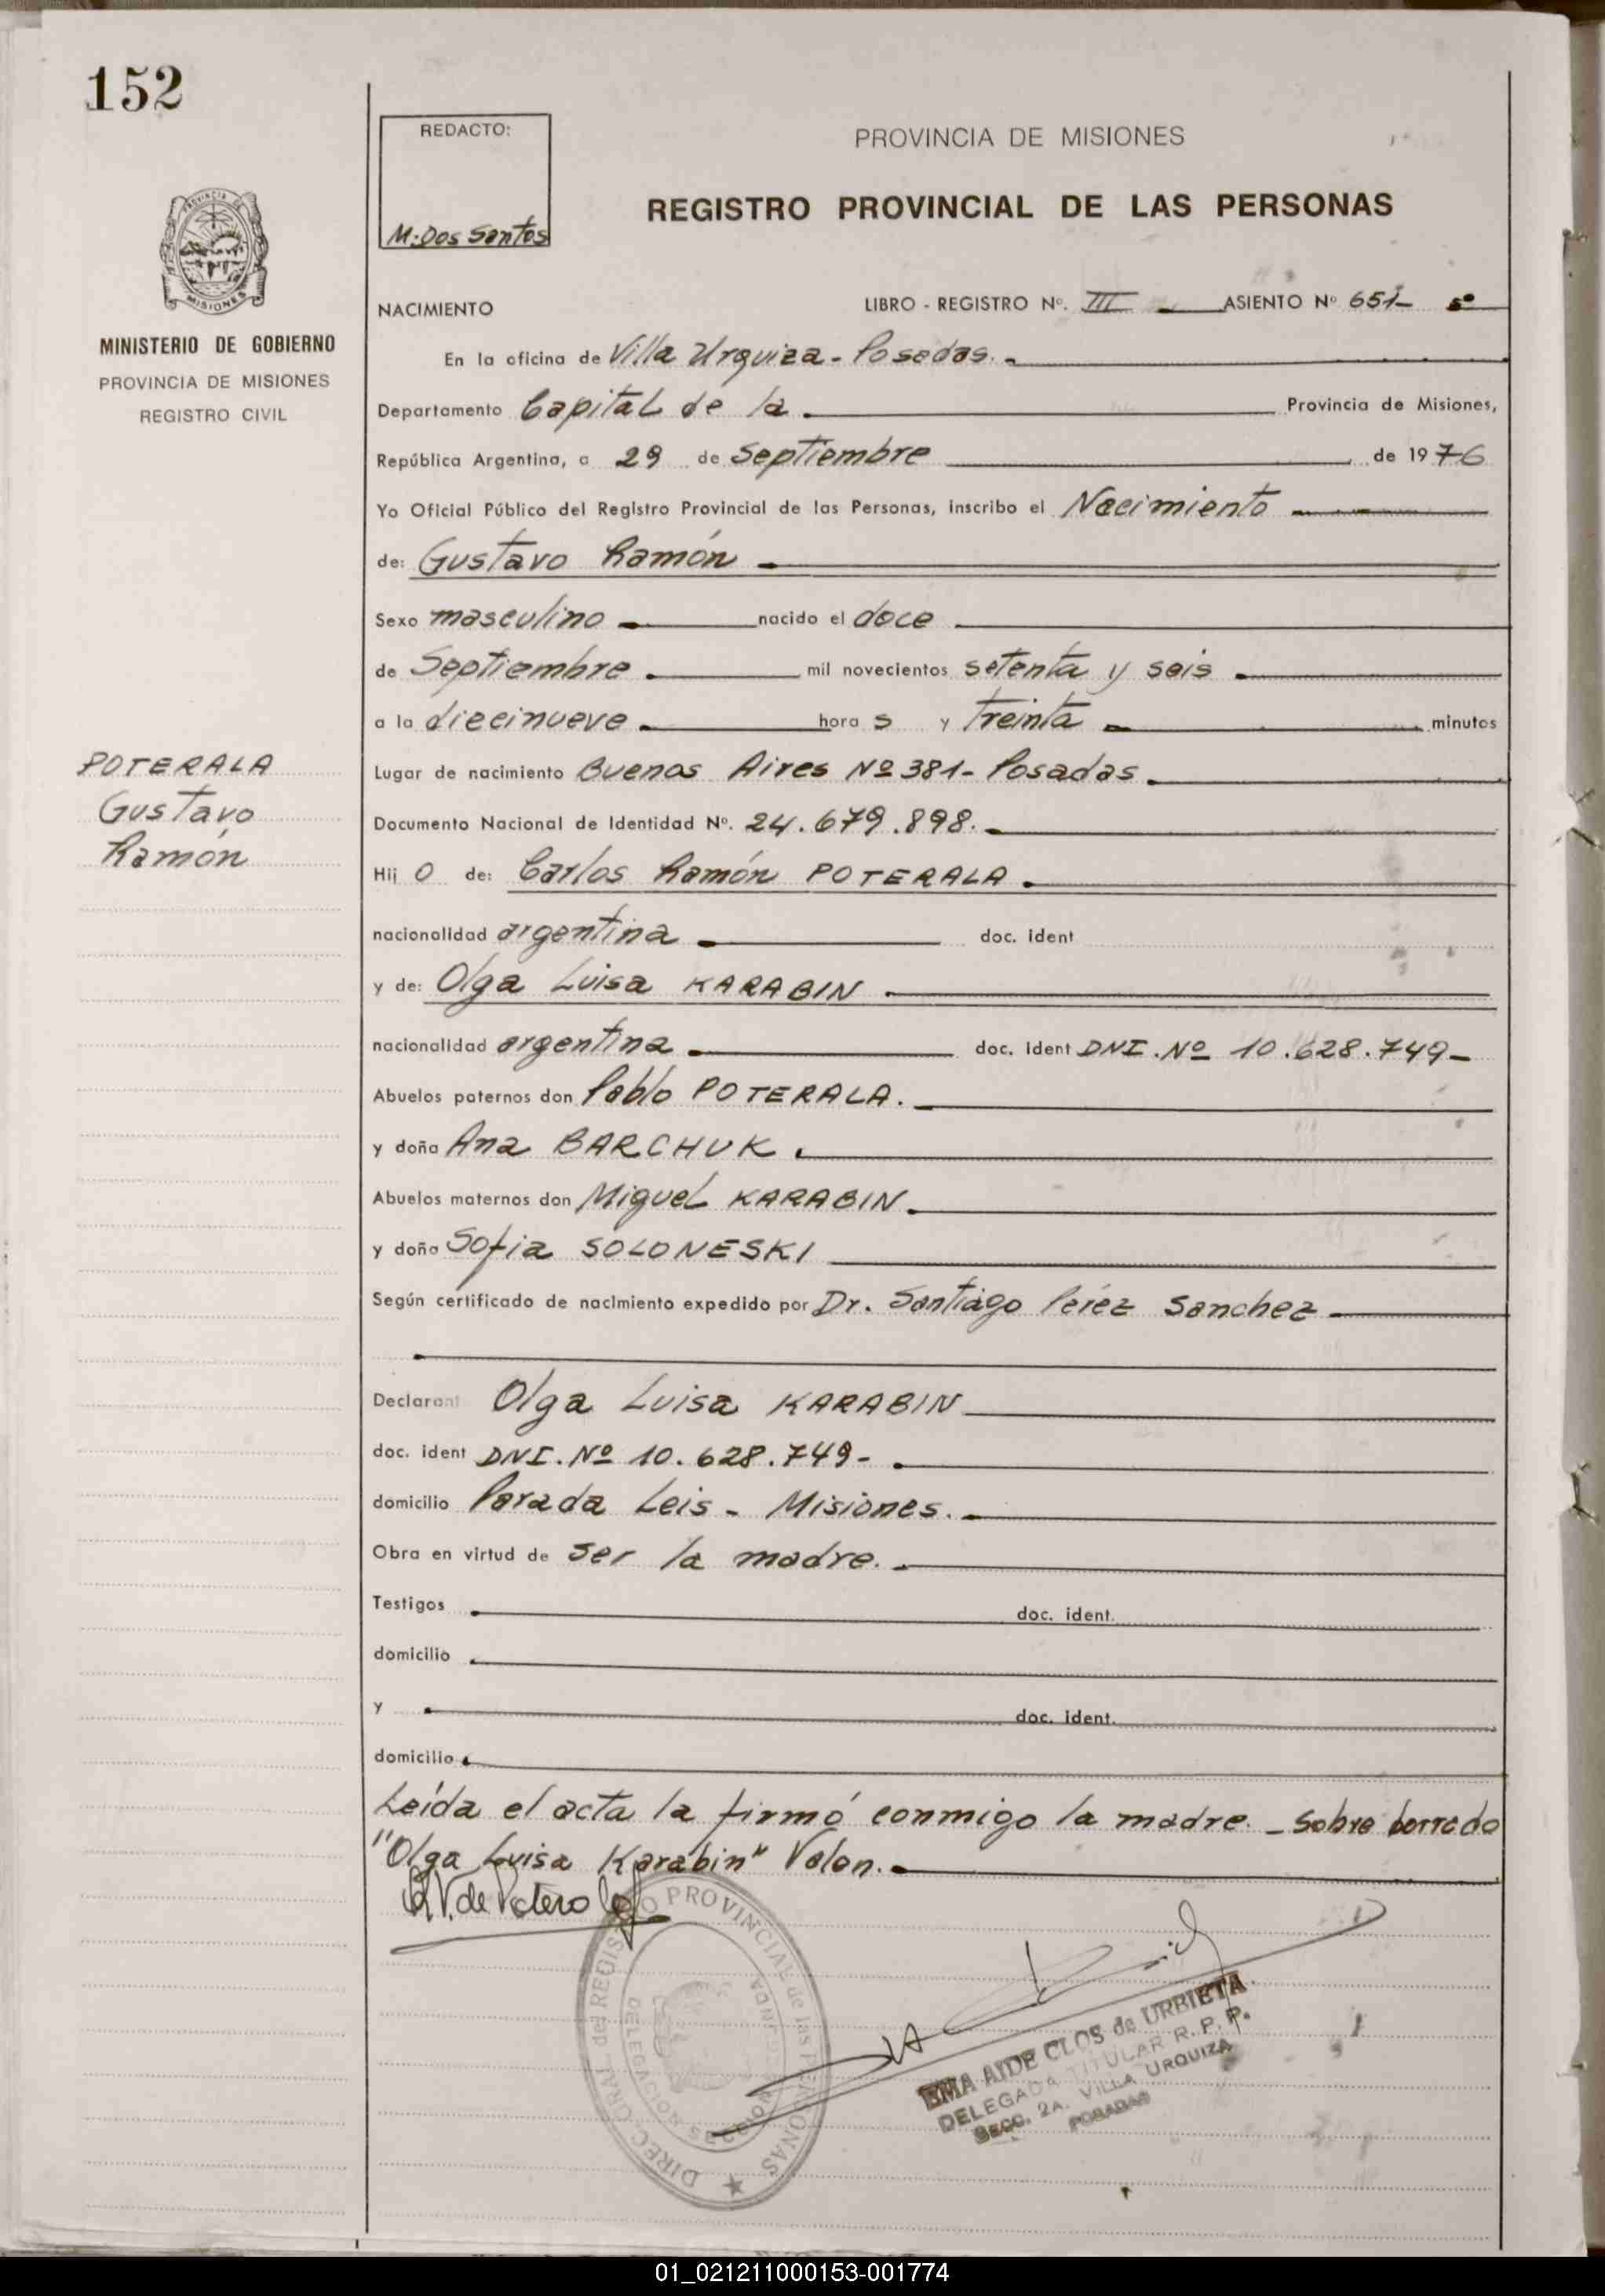 152
REDACTO:
M. Dos Santos
PROVINCIA DE MISIONES
REGISTRO PROVINCIAL DE LAS PERSONAS
PROVINCIA DE
MISIONES
MINISTERIO DE GOBIERNO
PROVINCIA DE MISIONES
REGISTRO CIVIL
NACIMIENTO LIBRO - REGISTRO Nº. III ASIENTO Nº 651- 5º
En la oficina de Villa Urquiza - Posadas.
Departamento Capital de la Provincia de Misiones,
República Argentina, a 29 de Septiembre de 1976
Yo Oficial Público del Registro Provincial de las Personas, inscribo el Nacimiento
de: Gustavo Ramón
Sexo masculino nacido el doce
de Septiembre mil novecientos setenta y seis
a la diecinueve hora s y treinta minutos
POTERALA
Gustavo
Ramón
Lugar de nacimiento Buenos Aires Nº 381 - Posadas
Documento Nacional de Identidad Nº. 24.679.898.
Hij o de: Carlos Ramón POTERALA
nacionalidad argentina doc. ident
y de: Olga Luisa KARABIN
nacionalidad argentina doc. ident DNI. Nº 10.628.749-
Abuelos paternos don Pablo POTERALA.
y doña Ana BARCHUK
Abuelos maternos don Miguel KARABIN
y doña Sofia SOLONESKI
Según certificado de nacimiento expedido por Dr. Santiago Pérez Sanchez
Declarant Olga Luisa KARABIN
doc. ident DNI. Nº 10.628.749-
domicilio Parada Leis - Misiones.
Obra en virtud de ser la madre.
Testigos doc. ident.
domicilio
y doc. ident.
domicilio
Leída el acta la firmó conmigo la madre. - Sobre borrado
"Olga Luisa Karabin" Valen.
DIREC. GRAL del REGISTRO PROVINCIAL de las PERSONAS
EMA AIDE CLOS de URBIETA
DELEGADA TITULAR R. P. P.
SECC. 2A. VILLA URQUIZA
POSADAS
01_021211000153-001774